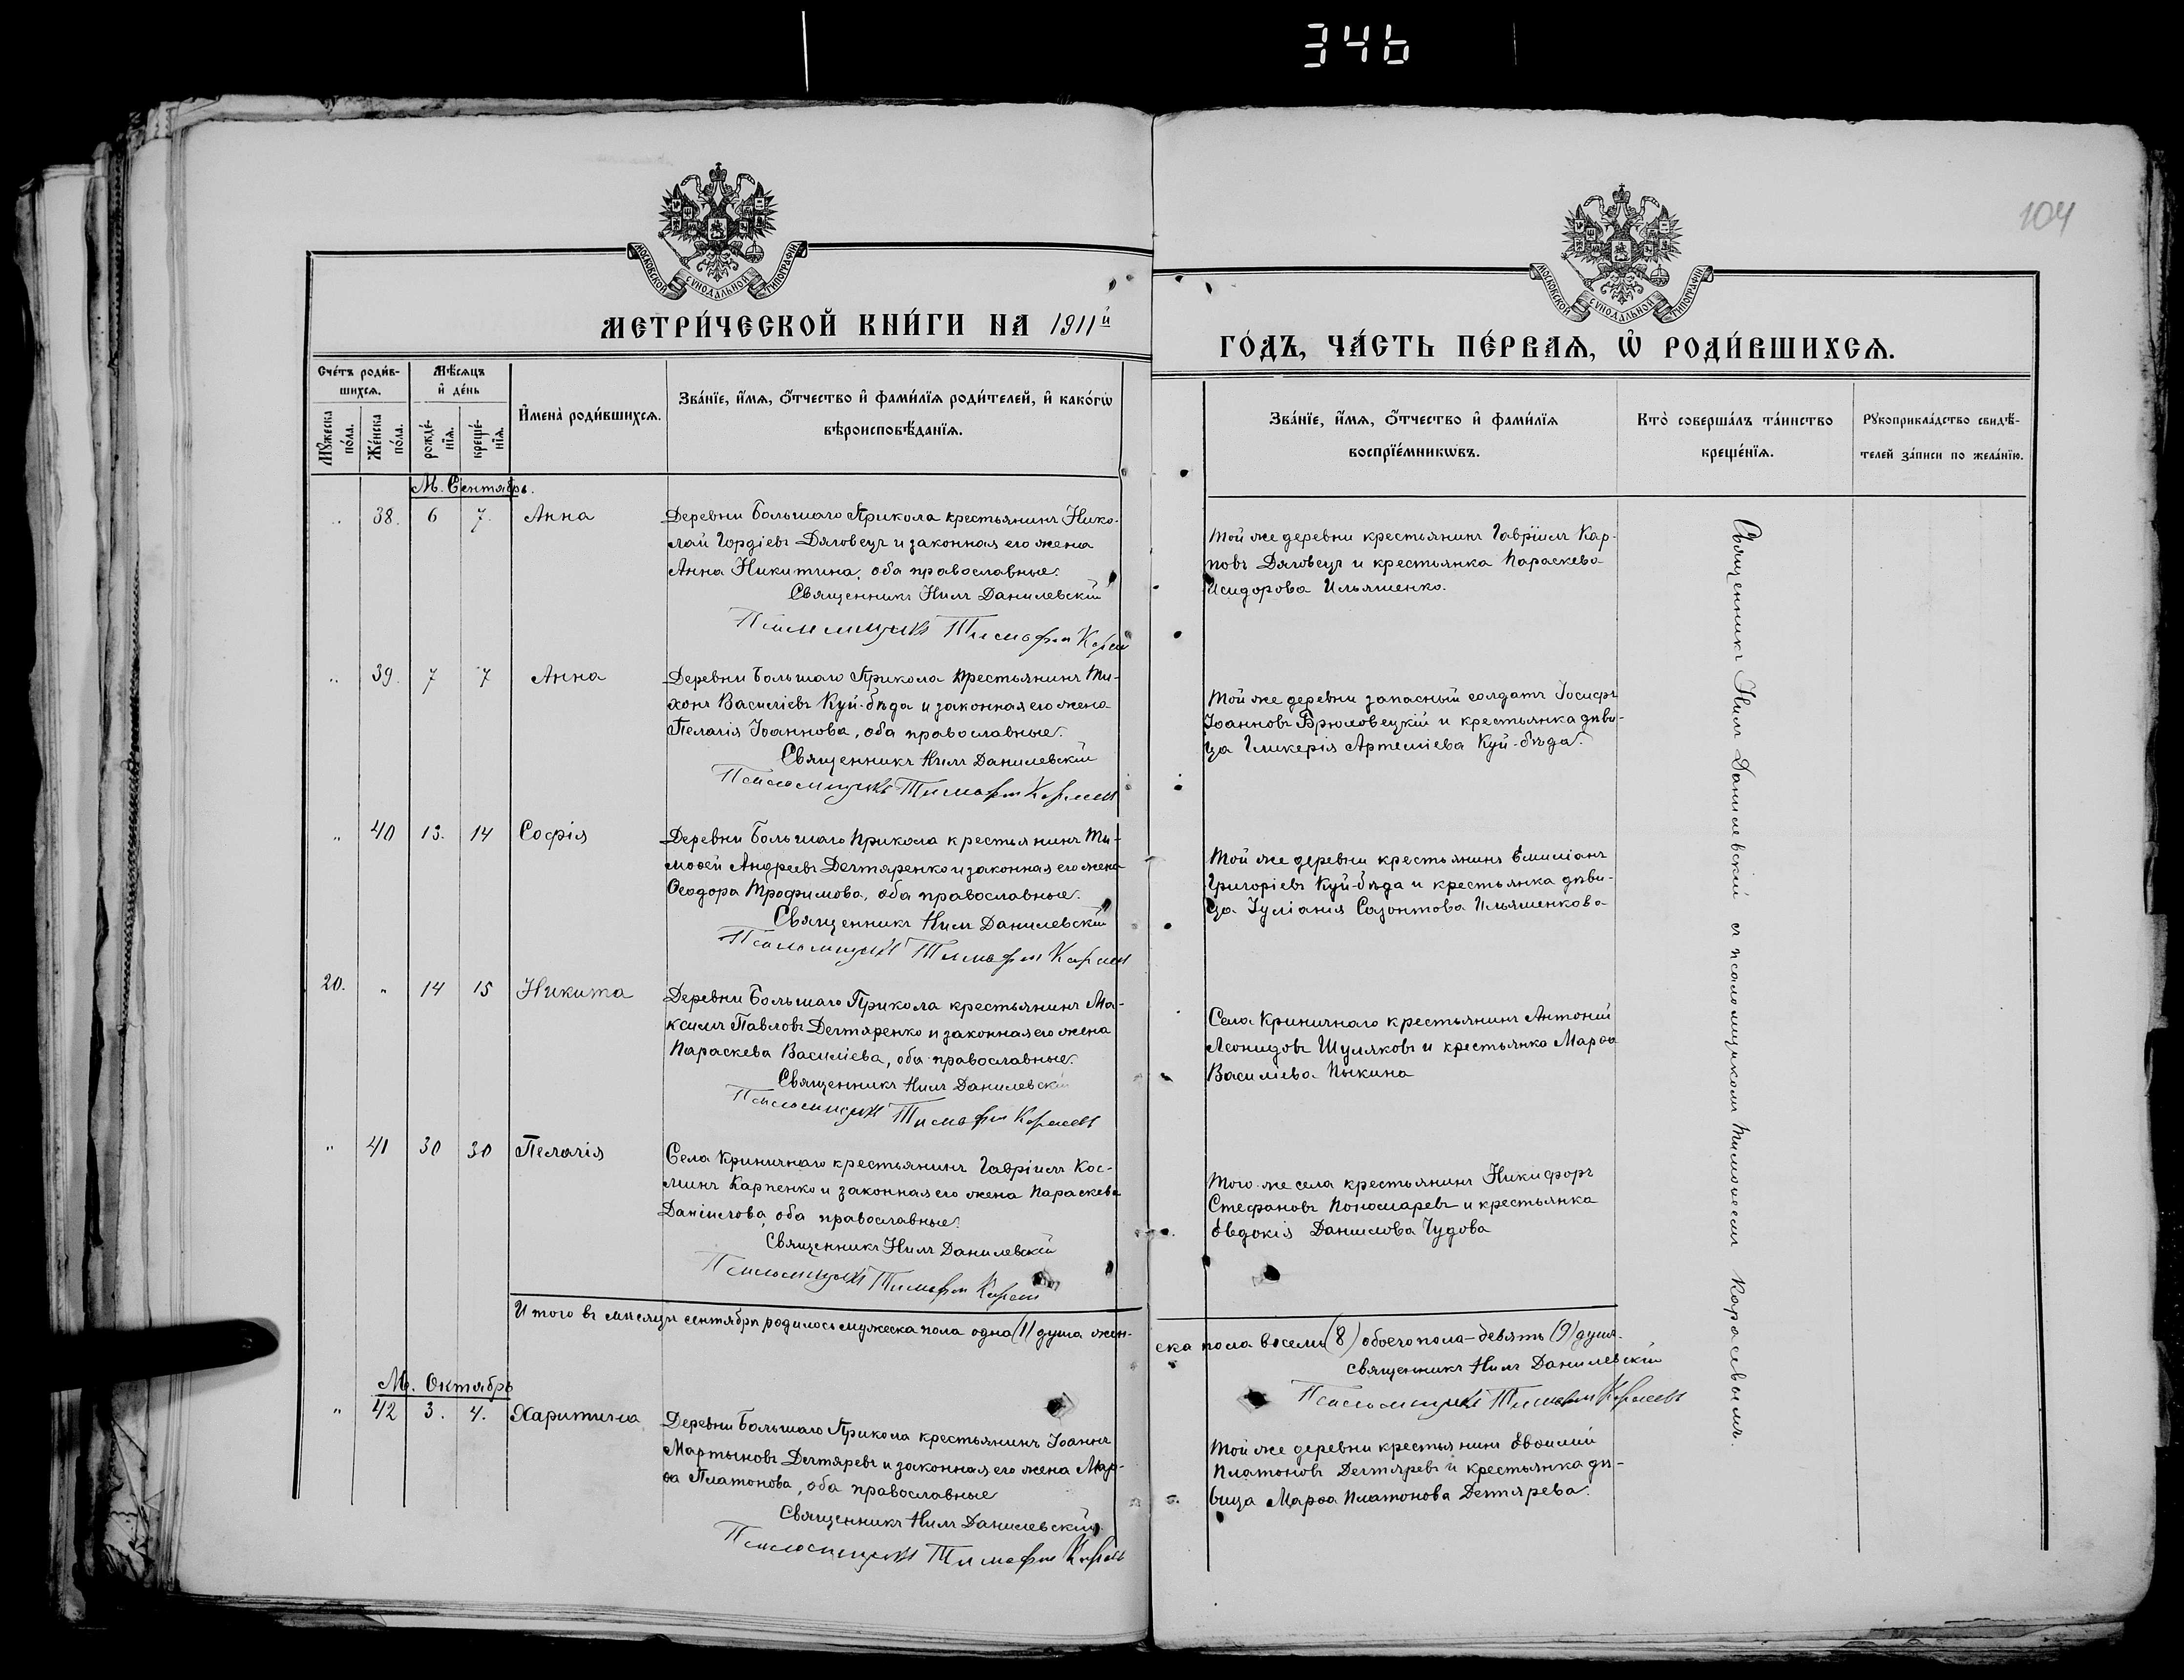 346
104
МОСКОВСКОЙ СУНОДАЛЬНОЙ ТИПОГРАФІИ
МОСКОВСКОЙ СУНОДАЛЬНОЙ ТИПОГРАФІИ
МЕТРИ́ЧЕСКОЙ КНИ́ГИ НА 1911й
ГО́ДЪ, ЧА́СТЬ ПЕ́РВАѦ, Ѡ҆ РОДИ́ВШИХСѦ.
Сче́тъ роди́в-
шихсѧ.
Мꙋжеска
по́ла.
Же́нска
по́ла.
Мѣ́сѧцъ
и҆ де́нь
рожде́-
нїѧ.
креще́-
нїѧ.
И҆мена̀ роди́вшихсѧ.
Зва́нїе, и҆́мѧ, ѻ҆́тчество и҆ фами́лїѧ роди́телей, и҆ како́гѡ
вѣроисповѣ́данїѧ.
Зва́нїе, и҆́мѧ, ѻ҆́тчество и҆ фами́лїѧ
воспрїе́мникѡвъ.
Кто̀ соверша́лъ та́инство
креще́нїѧ.
Рꙋкоприкла́дство свидѣ́-
телей за́писи по жела́нїю.
М. Сентябрь.
" 38. 6 7. Анна
Деревни Большаго Прикола крестьянинъ Нико-
лай Гордіевъ Дяговецъ и законная его жена
Анна Никитина, оба православные.
Священникъ Нилъ Данилевскій
Псаломщикъ Тимофей Карасевъ
Той же деревни крестьянинъ Гавріилъ Кар-
повъ Дяговецъ и крестьянка Параскева
Исидорова Ильяшенко.
" 39. 7 7 Анна
Деревни Большаго Прикола крестьянинъ Ти-
хонъ Василіевъ Куй-бѣда и законная его жена
Пелагія Іоаннова, оба православные.
Священникъ Нилъ Данилевскій
Псаломщикъ Тимофей Карасевъ
Той же деревни запасный солдатъ Іосифъ
Іоанновъ Брюловецкій и крестьянка дѣви-
ца Гликерія Артеміева Куй-бѣда.
" 40 13. 14 Софія
Деревни Большаго Прикола крестьянинъ Ти-
моѳей Андреевъ Дегтяренко и законная его жена
Ѳеодора Трофимова, оба православные.
Священникъ Нилъ Данилевскій
Псаломщикъ Тимофей Карасевъ
Той же деревни крестьянинъ Емиліанъ
Григоріевъ Куй-бѣда и крестьянка дѣви-
ца Іуліанія Созонтова Ильяшенкова
20. " 14 15 Никита
Деревни Большаго Прикола крестьянинъ Ма-
ксимъ Павловъ Дегтяренко и законная его жена
Параскева Василіева, оба православные.
Священникъ Нилъ Данилевскій
Псаломщикъ Тимофей Карасевъ
Села Криничнаго крестьянинъ Антоній
Леонидовъ Шуляковъ и крестьянка Марѳа
Василіева Пыкина
" 41 30 30 Пелагія
Села Криничнаго крестьянинъ Гавріилъ Кос-
минъ Карпенко и законная его жена Параскева
Даніилова, оба православные.
Священникъ Нилъ Данилевскій
Псаломщикъ Тимофей Карасевъ
Того-же села крестьянинъ Никифоръ
Стефановъ Пономаревъ и крестьянка
Евдокія Данилова Чудова
Итого въ мѣсяцѣ сентябрѣ родилось мужеска пола одна (1) душа жен-
ска пола восемь (8) обоего пола - девять (9) душъ.
Священникъ Нилъ Данилевскій
Псаломщикъ Тимофей Карасевъ
М. Октябрь
" 42 3. 4. Харитина
Деревни Большаго Прикола крестьянинъ Іоаннъ
Мартыновъ Дегтяревъ и законная его жена Мар-
ѳа Платонова, оба православные
Священникъ Нилъ Данилевскій
Псаломщикъ Тимофей Карасевъ
Той же деревни крестьянинъ Евѳимій
Платоновъ Дегтяревъ и крестьянка дѣ-
вица Марѳа Платонова Дегтярева.
Священникъ Нилъ Данилевскій съ псаломщикомъ Тимоѳеемъ Карасевымъ.